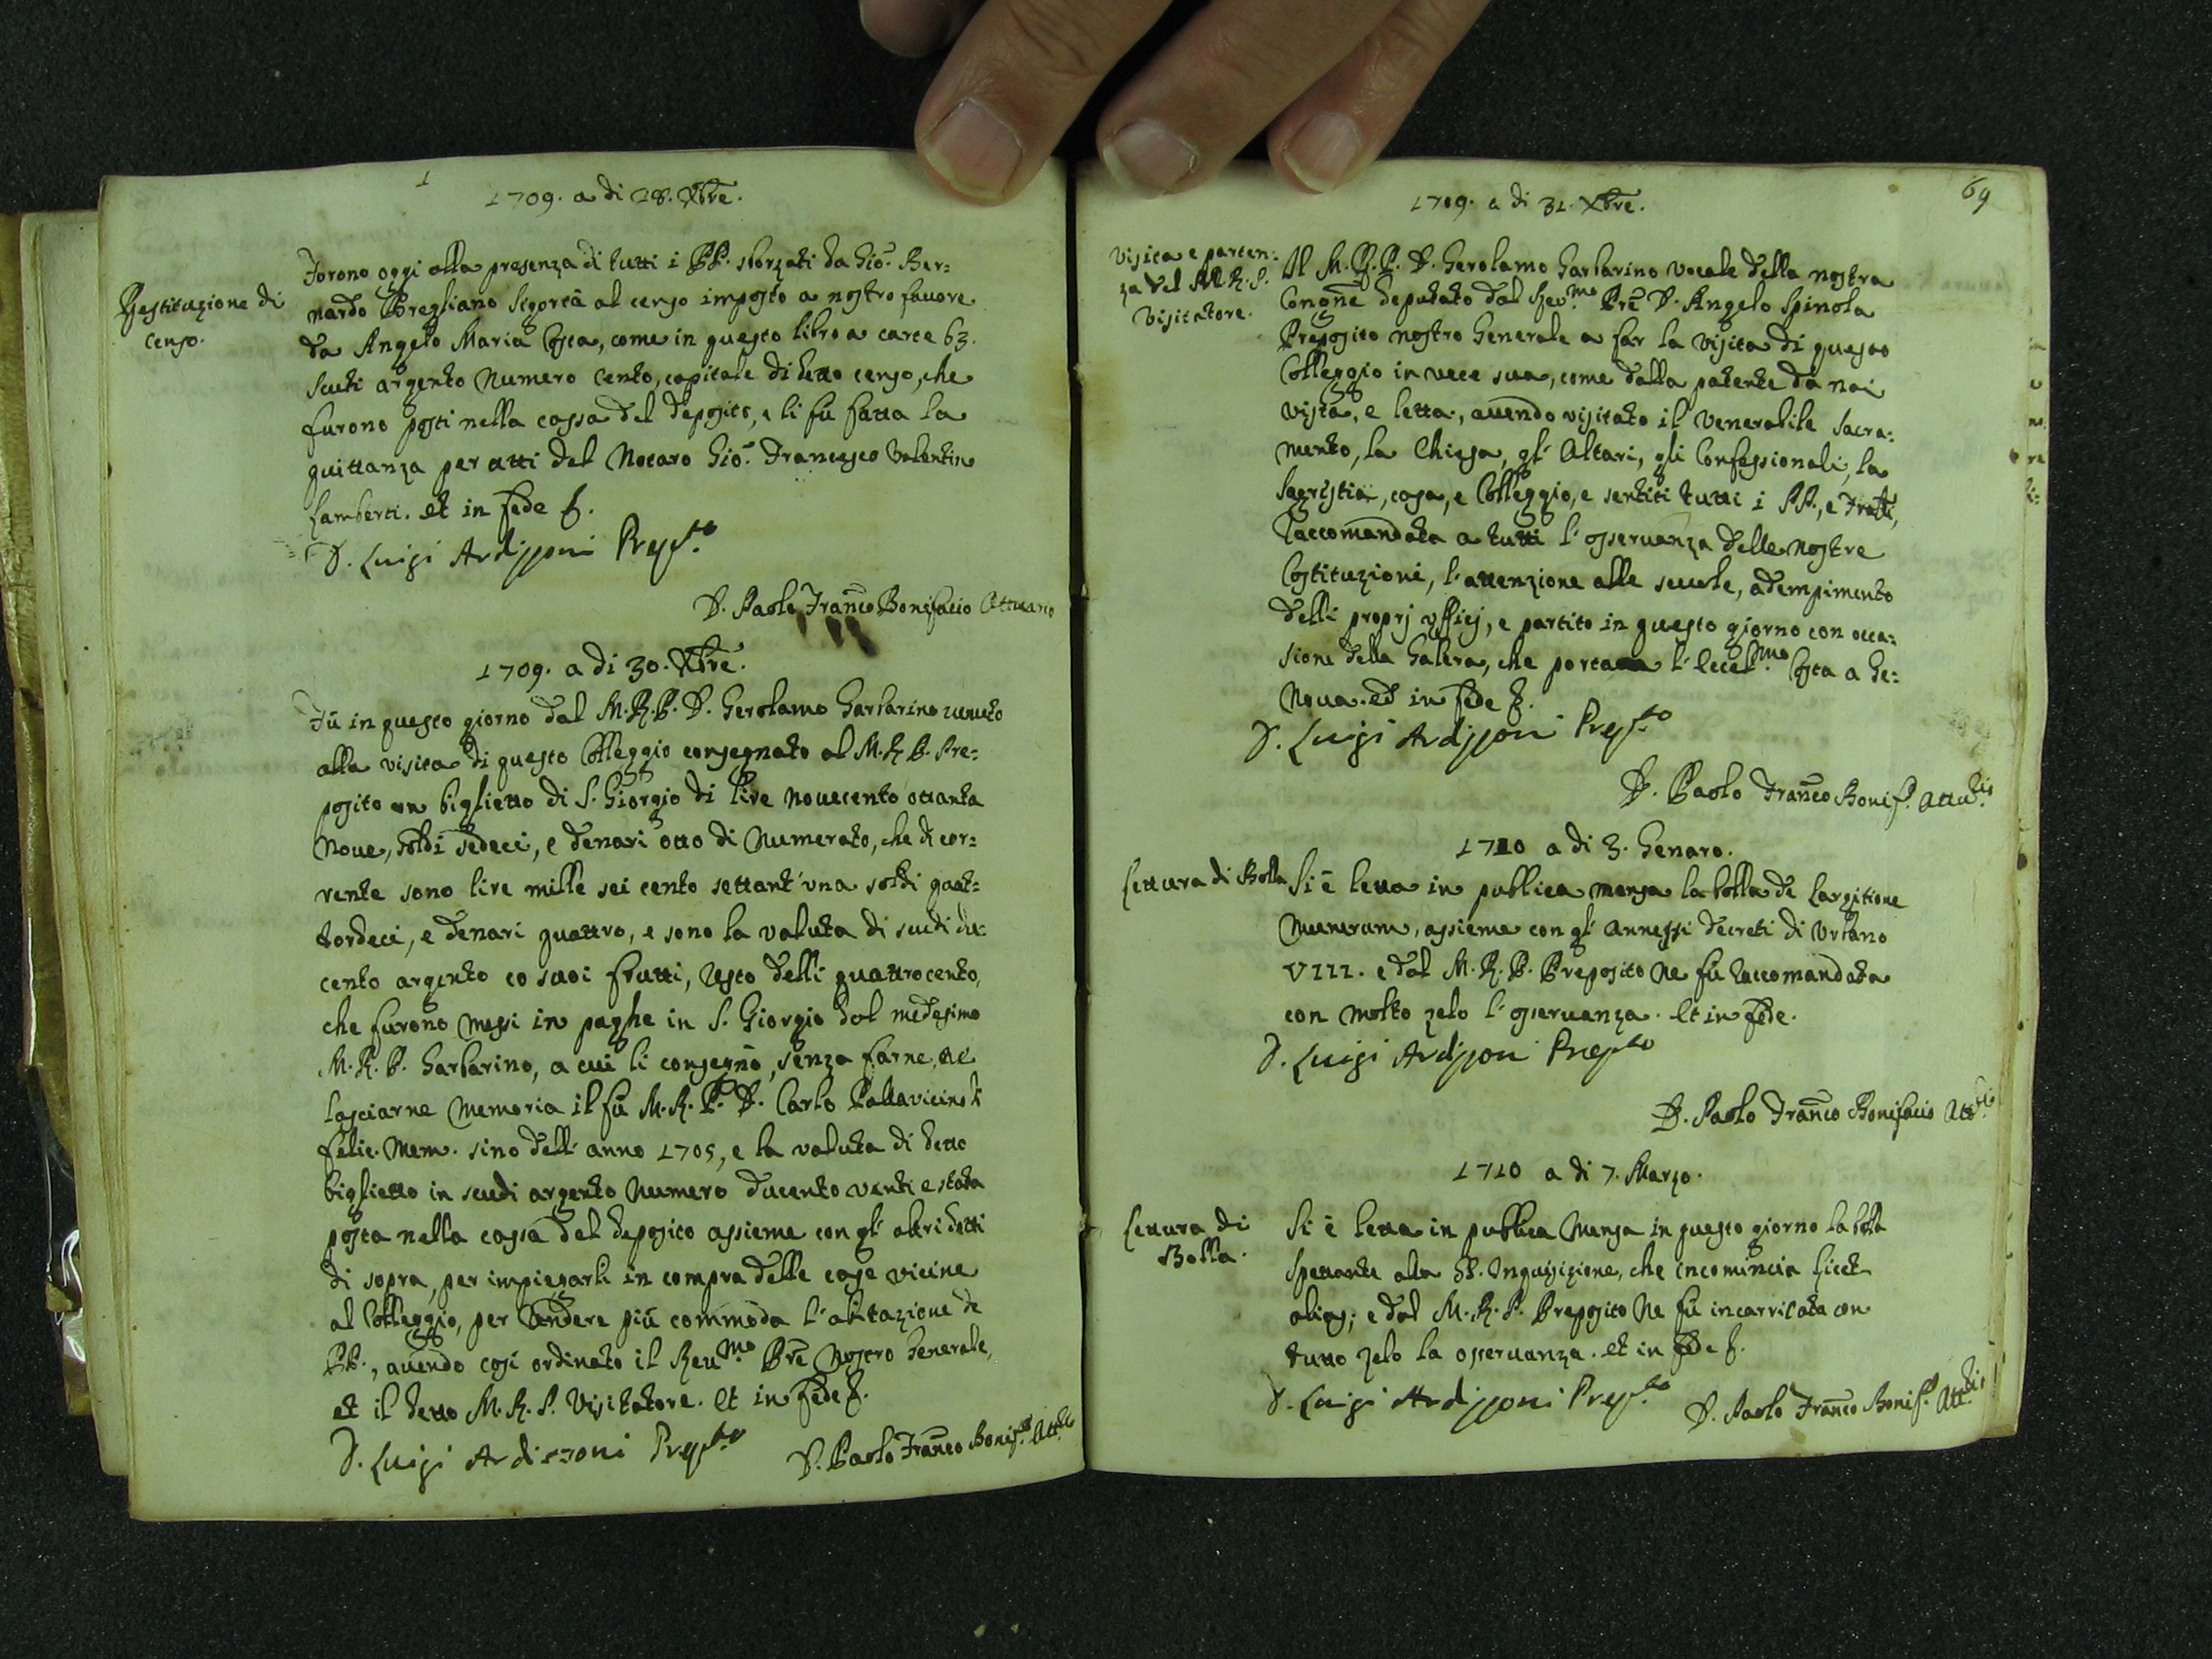 1709. a di 28. Xbre.
Restituzione di
censo.
Forono oggi alla presenza di tutti i PP. sborzati da Gio. Ber=
nardo Bregliano sigortà al censo imposto a nostro favore
da Angelo Maria Costa, come in questo libro a carte 63.
scuti argento numero cento, capitale di detto censo, che
furono posti nella cassa del deposito, e li fù fatta la
quittanza per atti del Notaro Gio. Francesco Valentino
Lamberti. et in fede &.
D. Luigi Ardizzoni Prep.to
D. Paolo Franco Bonifacio Attuario
1709. a di 30. Xbre.
Fù in questo giorno dal M.R.P. D. Gerolamo Garbarino venuto
alla visita di questo Colleggio consegnato al M.R.P. Pre=
posito un biglietto di S. Giorgio di lire novecento ottanta
nove, soldi sedeci, e denari otto di numerato, che di cor=
rente sono lire mille sei cento settant'una soldi quat=
tordeci, e denari quattro, e sono la valuta di scudi du=
cento argento co suoi frutti, resto delli quattrocento,
che furono messi in paghe in S. Giorgio dal medesimo
M.R.P. Garbarino, a cui li consegnò, senza farne, ne
lasciarne memoria il fù M.R.P. D. Carlo Pallavicino di
felic. mem. sino dell'anno 1705, e la valuta di detto
biglietto in scudi argento numero ducento venti è stata
posta nella cassa del deposito assieme con gl'altri detti
di sopra, per impiegarli in compra delle case vicine
al Colleggio, per rendere più commoda l'abitazione de
PP., avendo così ordinato il Reu.mo Pre Nostro Generale,
et il detto M.R.P. Visitatore. et in fede &.
D. Luigi Ardizzoni Prep.to
D. Paolo Franco Bonif.o Att.rio
69
1709. a di 31. Xbre.
Visita e parten=
za del M.R.P.
Visitatore.
Il M.R.P. D. Gerolamo Garbarino vocale della nostra
Congne deputato dal Reu.mo Pre D. Angelo Spinola
Preposito nostro Generale a far la visita di questo
Colleggio in vece sua, come dalla patente da noi
vista, e letta, avendo visitato il Venerabile Sacra=
mento, la Chiesa, gl'Altari, gli Confessionali, la
Sagristia, casa, e Colleggio, e sentiti tutti i PP., e Fratti,
raccomandata a tutti l'osservanza delle nostre
Costituzioni, l'attenzione alle scuole, adempimento
delli proprj ufficj, è partito in questo giorno con occa=
sione della Galera, che porta l'Eccel.mo Costa a Ge=
nova. et in fede &.
D. Luigi Ardizzoni Prep.to
D. Paolo Franco Bonif.o Attu.rio
1710 a di 3. Genaro.
Lettura di Bolla
Si è letta in publica mensa la bolla de Largitione
Munerum, assieme con gl'annessi decreti di Urbano
VIII. e dal M.R.P. Preposito ne fù raccomandata
con molto zelo l'osservanza. et in fede.
D. Luigi Ardizzoni Prep.to
D. Paolo Franco Bonifacio Att.rio
1710 a di 7. Marzo.
Lettura di
Bolla.
Si è letta in publica mensa in questo giorno la bolla
spettante alla St. Inquisizione, che incomincia licet
alias; e dal M.R.P. Preposito ne fù incarricata con
tutto zelo la osservanza. et in fede &.
D. Luigi Ardizzoni Prep.to
D. Paolo Franco Bonif.o Att.rio